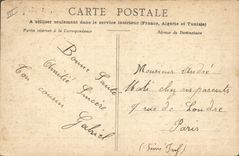 CARTE POSTALE
A utiliser seulement dans le service intérieur (France, Algérie et Tunisie)
Partie réservée à la Correspondance
Adresse du Destinataire
Bonne Santé
Amitié Sincère
Ton cousin
Gabriel
Monsieur André
chez ses parents
9 rue de Londre
Paris